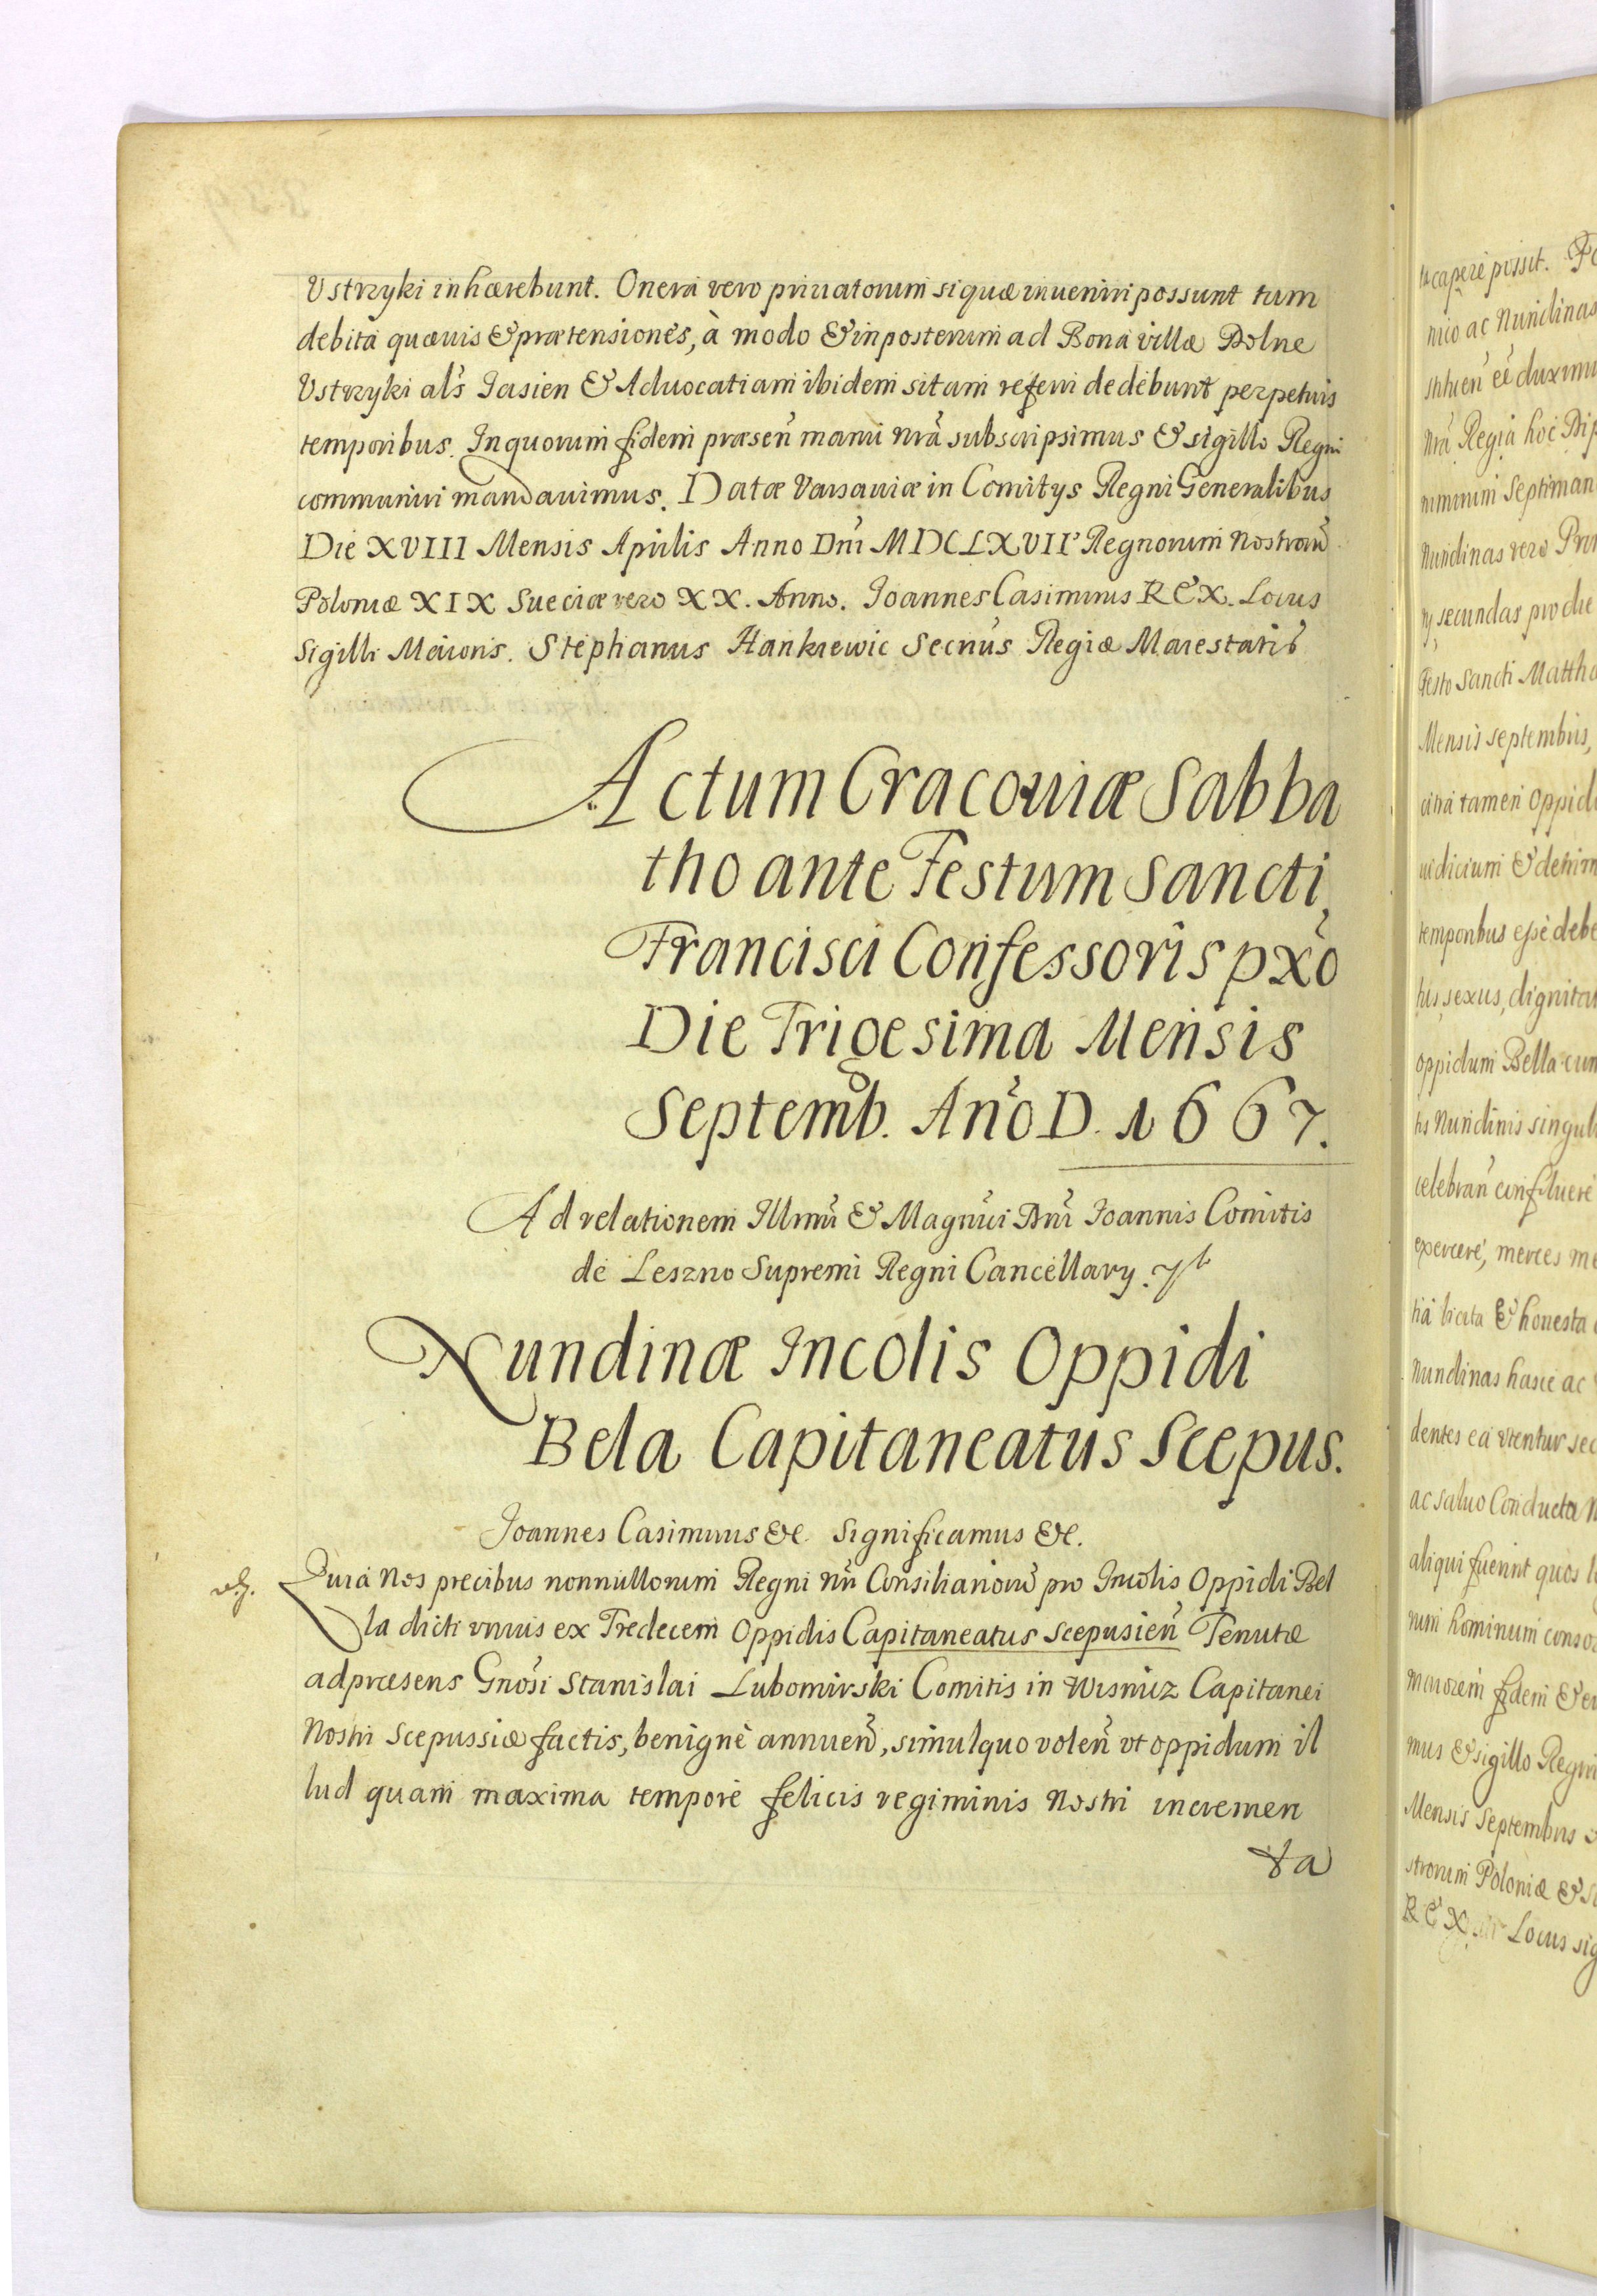 Vstrzyki inhærebunt. Onera vero priuatorum si quæ inueniri possunt tum
debita quæuis & prætensiones, à modo & in posterum ad Bona villæ Dolne
Vstrzyki al's Jasien & Aduocatiam ibidem sitam referri dedebunt perpetuis
temporibus. In quorum fidem præsen̄ manu nr̄a subscripsimus & sigillo Regni
communiri mandauimus. Datæ Varsauiæ in Comitys Regni Generalibus
Die XVIII Mensis Aprilis Anno Dn̄i MDCLXVII Regnorum nostrorū
Poloniæ XIX Sueciæ vero XX. Anno. Joannes Casimirus REX. Locus
Sigilli Maioris. Stephanus Hankiewic Secr̄us Regiæ Maiestatis
Actum Cracouiæ Sabba
tho ante Festum Sancti
Francisci Confessoris pxo
Die Trigesima Mensis
Septemb. An̄o D. 1667.
Ad relationem Illmi & Magn̄ci Dn̄i Joannis Comitis
de Leszno Supremi Regni Cancellary.
Nundinæ Incolis Oppidi
Bela Capitaneatus Scepus.
Joannes Casimirus &c. Significamus &c.
Quia Nos precibus nonnullorum Regni nr̄i Consiliariorū pro Incolis Oppidi Bel
la dicti vnius ex Tredecem Oppidis Capitaneatus Scepusien̄ Tenutæ
ad præsens Gnōsi Stanislai Lubomirski Comitis in Wisnicz Capitanei
Nostri Scepussiæ factis, benignè annuen̄, simulquo volen̄ vt oppidum il
lud quam maxima tempore felicis regiminis Nostri incremen
ta
ut capere possit.
mio ac Nundinas
nr̄a Regia hoc
Nundinas vero
secundas pro die
Festo Sancti Matth
Mensis Septembris,
tamen Oppid
temporibus esse debe
sexus, dignitat
oppidum Bella cum
Nundinis singul
celebran̄ confluere
exercere, merces me
licita & honesta
Nundinas hasce ac
dentes ea vtentur sec
ac saluo Conductu
aliqui fuerint quos
rum hominum conso
maiorem fidem &
mus & sigillo Regni
Mensis Septembris
strorum Poloniæ & S
REX Locus sig